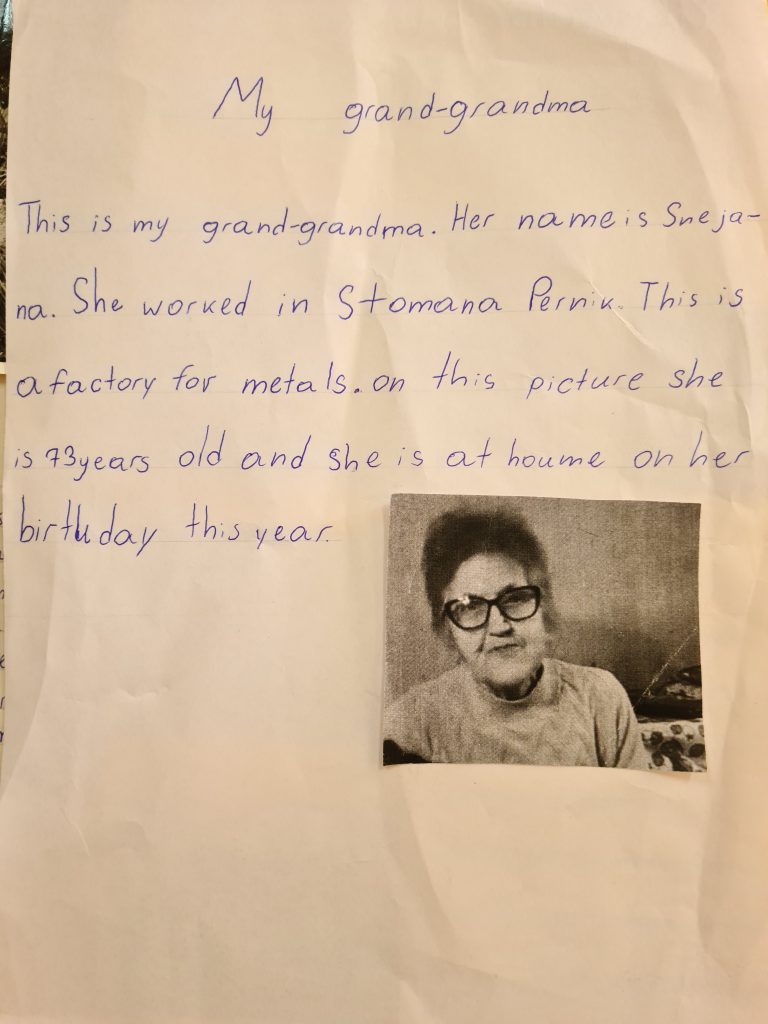 My grand-grandma
This is my grand-grandma. Her name is Sneja-
na. She worked in Stomana Pernik. This is
a factory for metals. on this picture she
is 73 years old and she is at houme on her
birthday this year.